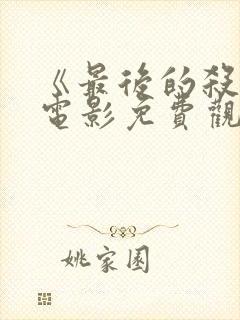 《最後的殺
電影免費觀
姚家園